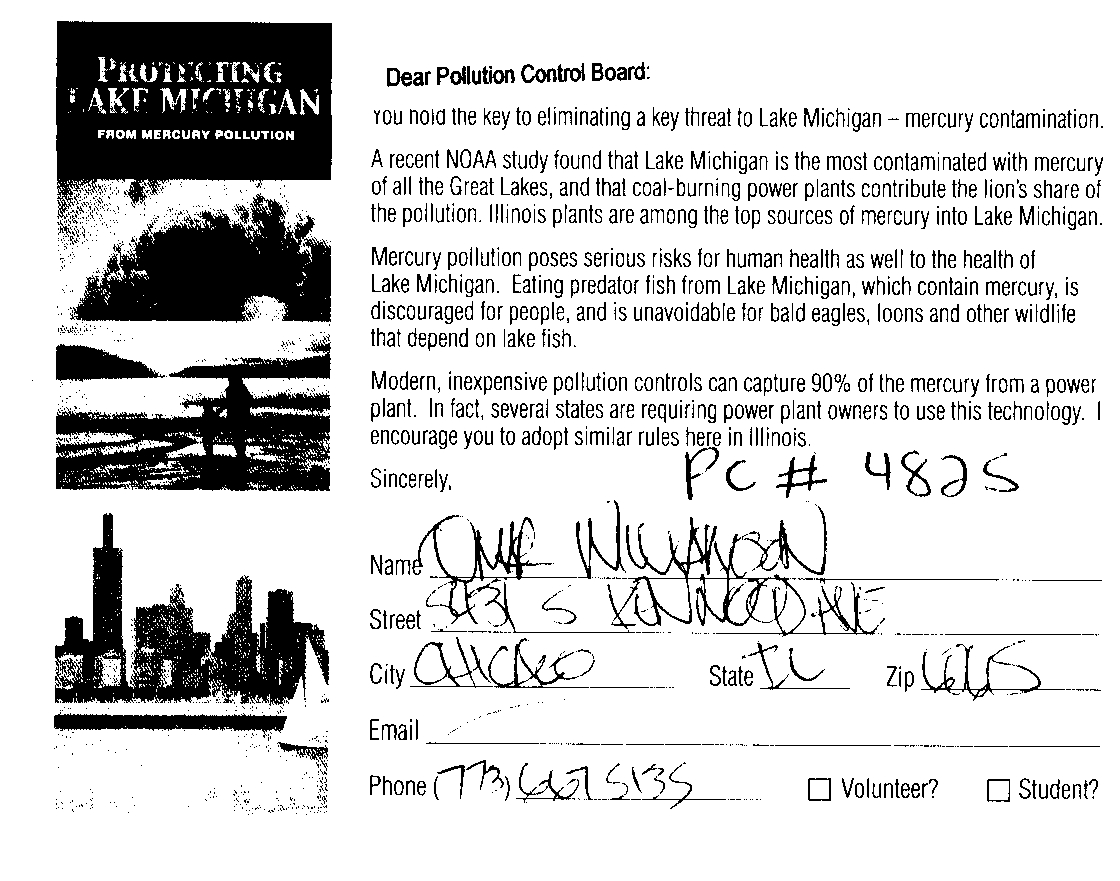 PROTECTING
LAKE MICHIGAN
FROM MERCURY POLLUTION
Dear Pollution Control Board:
You hold the key to eliminating a key threat to Lake Michigan – mercury contamination.
A recent NOAA study found that Lake Michigan is the most contaminated with mercury
of all the Great Lakes, and that coal-burning power plants contribute the lion's share of
the pollution. Illinois plants are among the top sources of mercury into Lake Michigan.
Mercury pollution poses serious risks for human health as well to the health of
Lake Michigan. Eating predator fish from Lake Michigan, which contain mercury, is
discouraged for people, and is unavoidable for bald eagles, loons and other wildlife
that depend on lake fish.
Modern, inexpensive pollution controls can capture 90% of the mercury from a power
plant. In fact, several states are requiring power plant owners to use this technology. I
encourage you to adopt similar rules here in Illinois.
Sincerely,
PC # 4825
Name
Street S KENWOOD AVE
City CHICAGO State IL Zip
Email
Phone (773) 667 5135 Volunteer? Student?